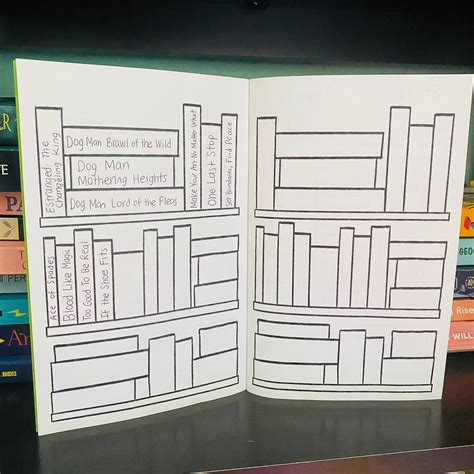 Estranged The
Changeling King
Dog Man Brawl of the Wild
Dog Man
Mothering Heights
Dog Man Lord of the Fleas
Make Your Art No Matter What
One Last Stop
Set Boundaries, Find Peace
Ace of Spades
Blood Like Magic
Too Good To Be Real
If the Shoe Fits
RHODES
Rise
WILL